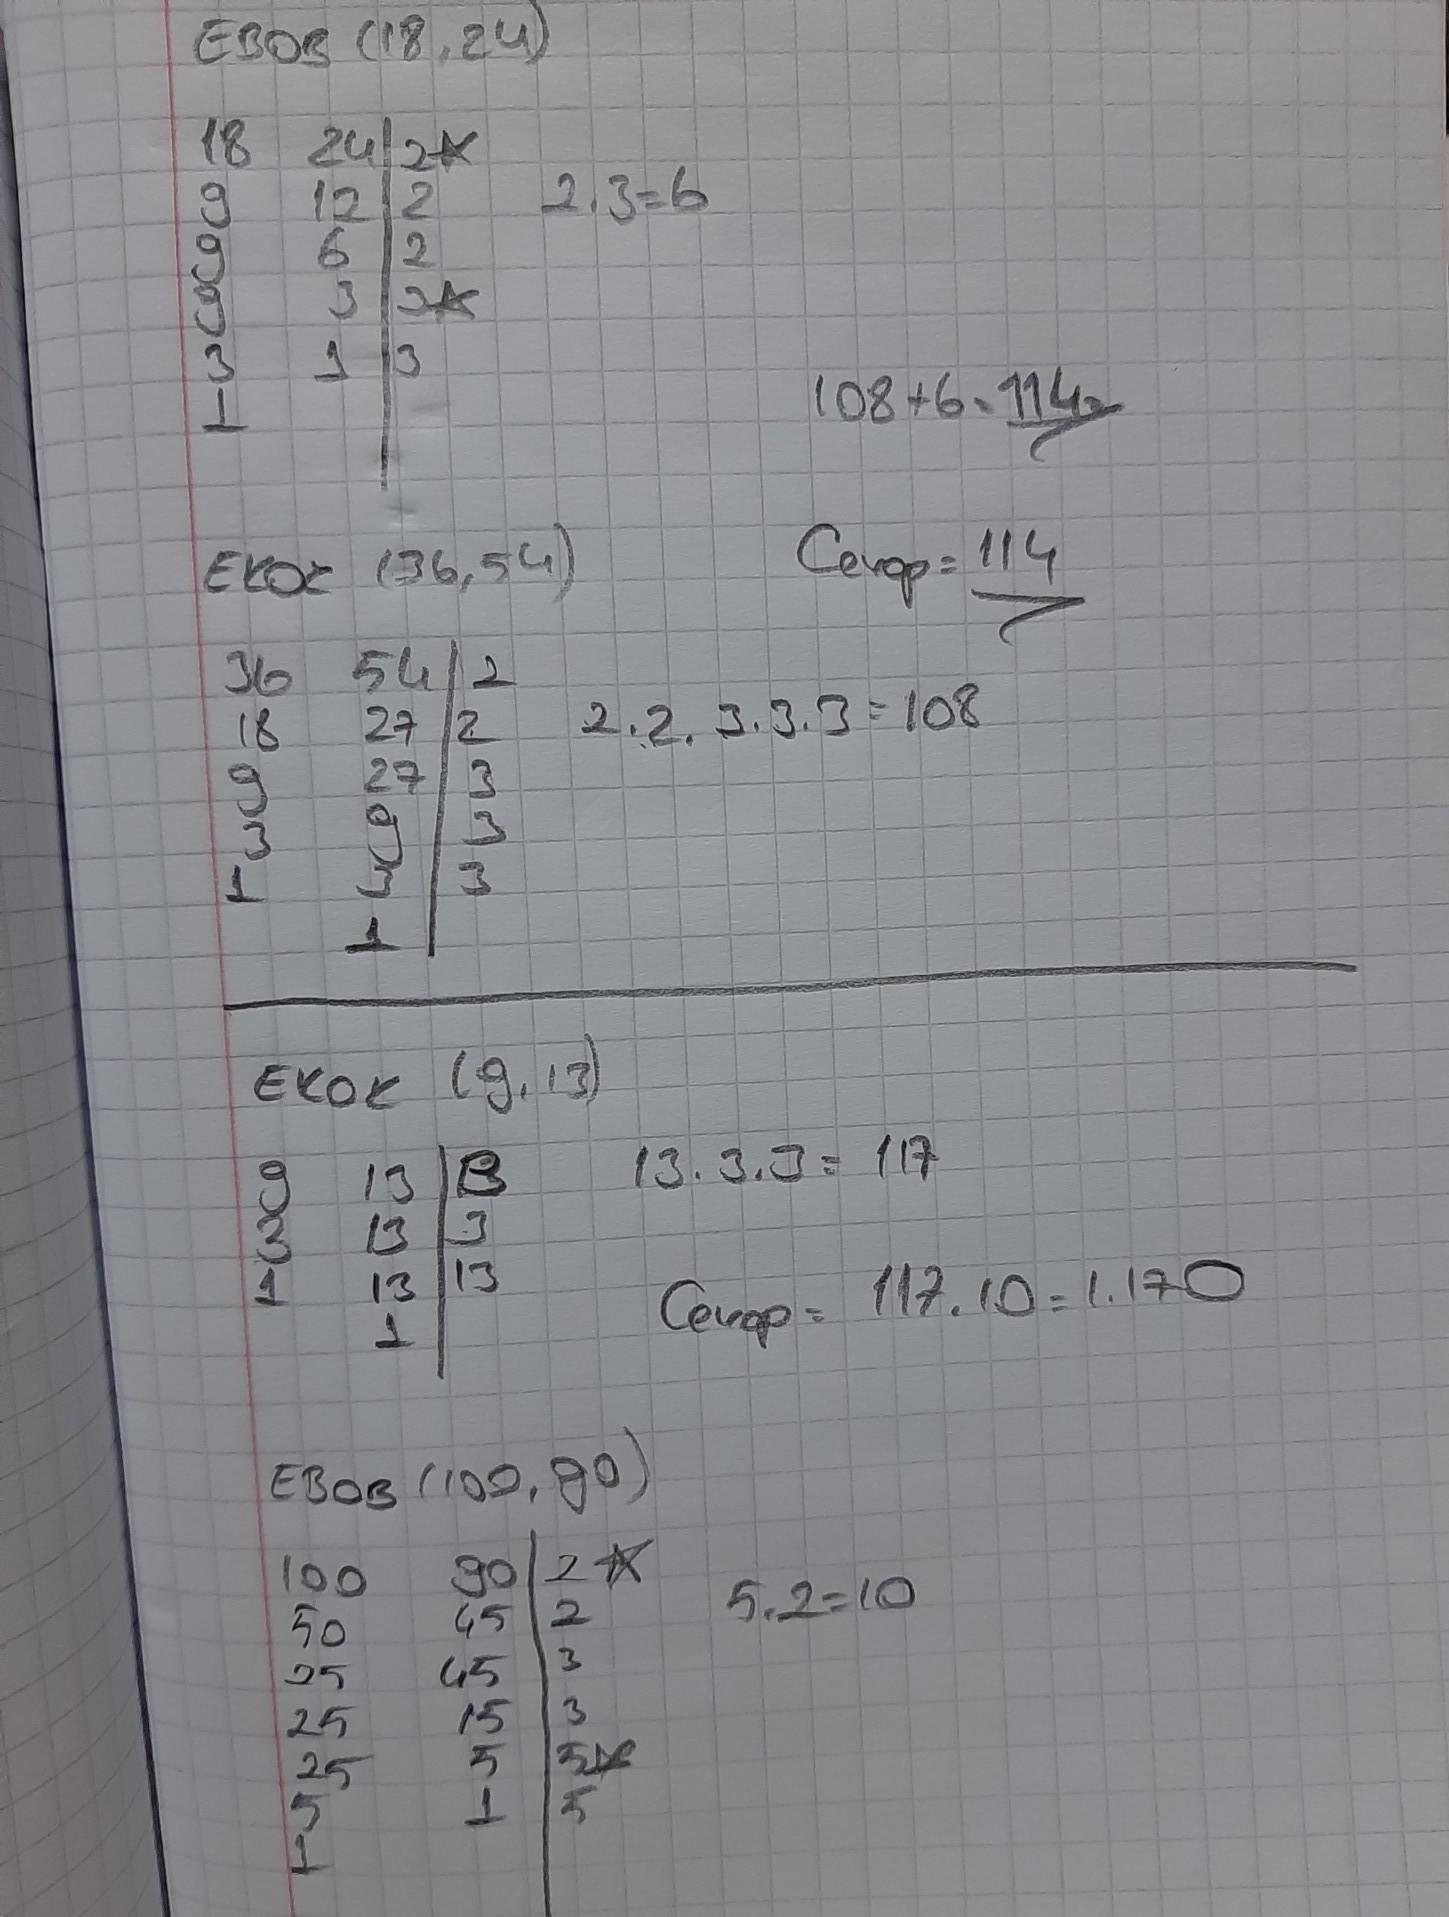 EBOB (18,24)
18 24 2★
9 12 2
9 6 2
9 3 3★
3 1 3
1
2.3=6
108+6=114
EKOK (36,54)
Cevap=114
36 54 2
18 27 2
9 27 3
3 9 3
1 3 3
1
2.2.3.3.3=108
EKOK (9,13)
9 13 3
3 13 3
1 13 13
1
13.3.3=117
Cevap= 117.10=1.170
EBOB (100,90)
100 90 2★
50 45 2
25 45 3
25 15 3
25 5 5★
5 1 5
1
5.2=10